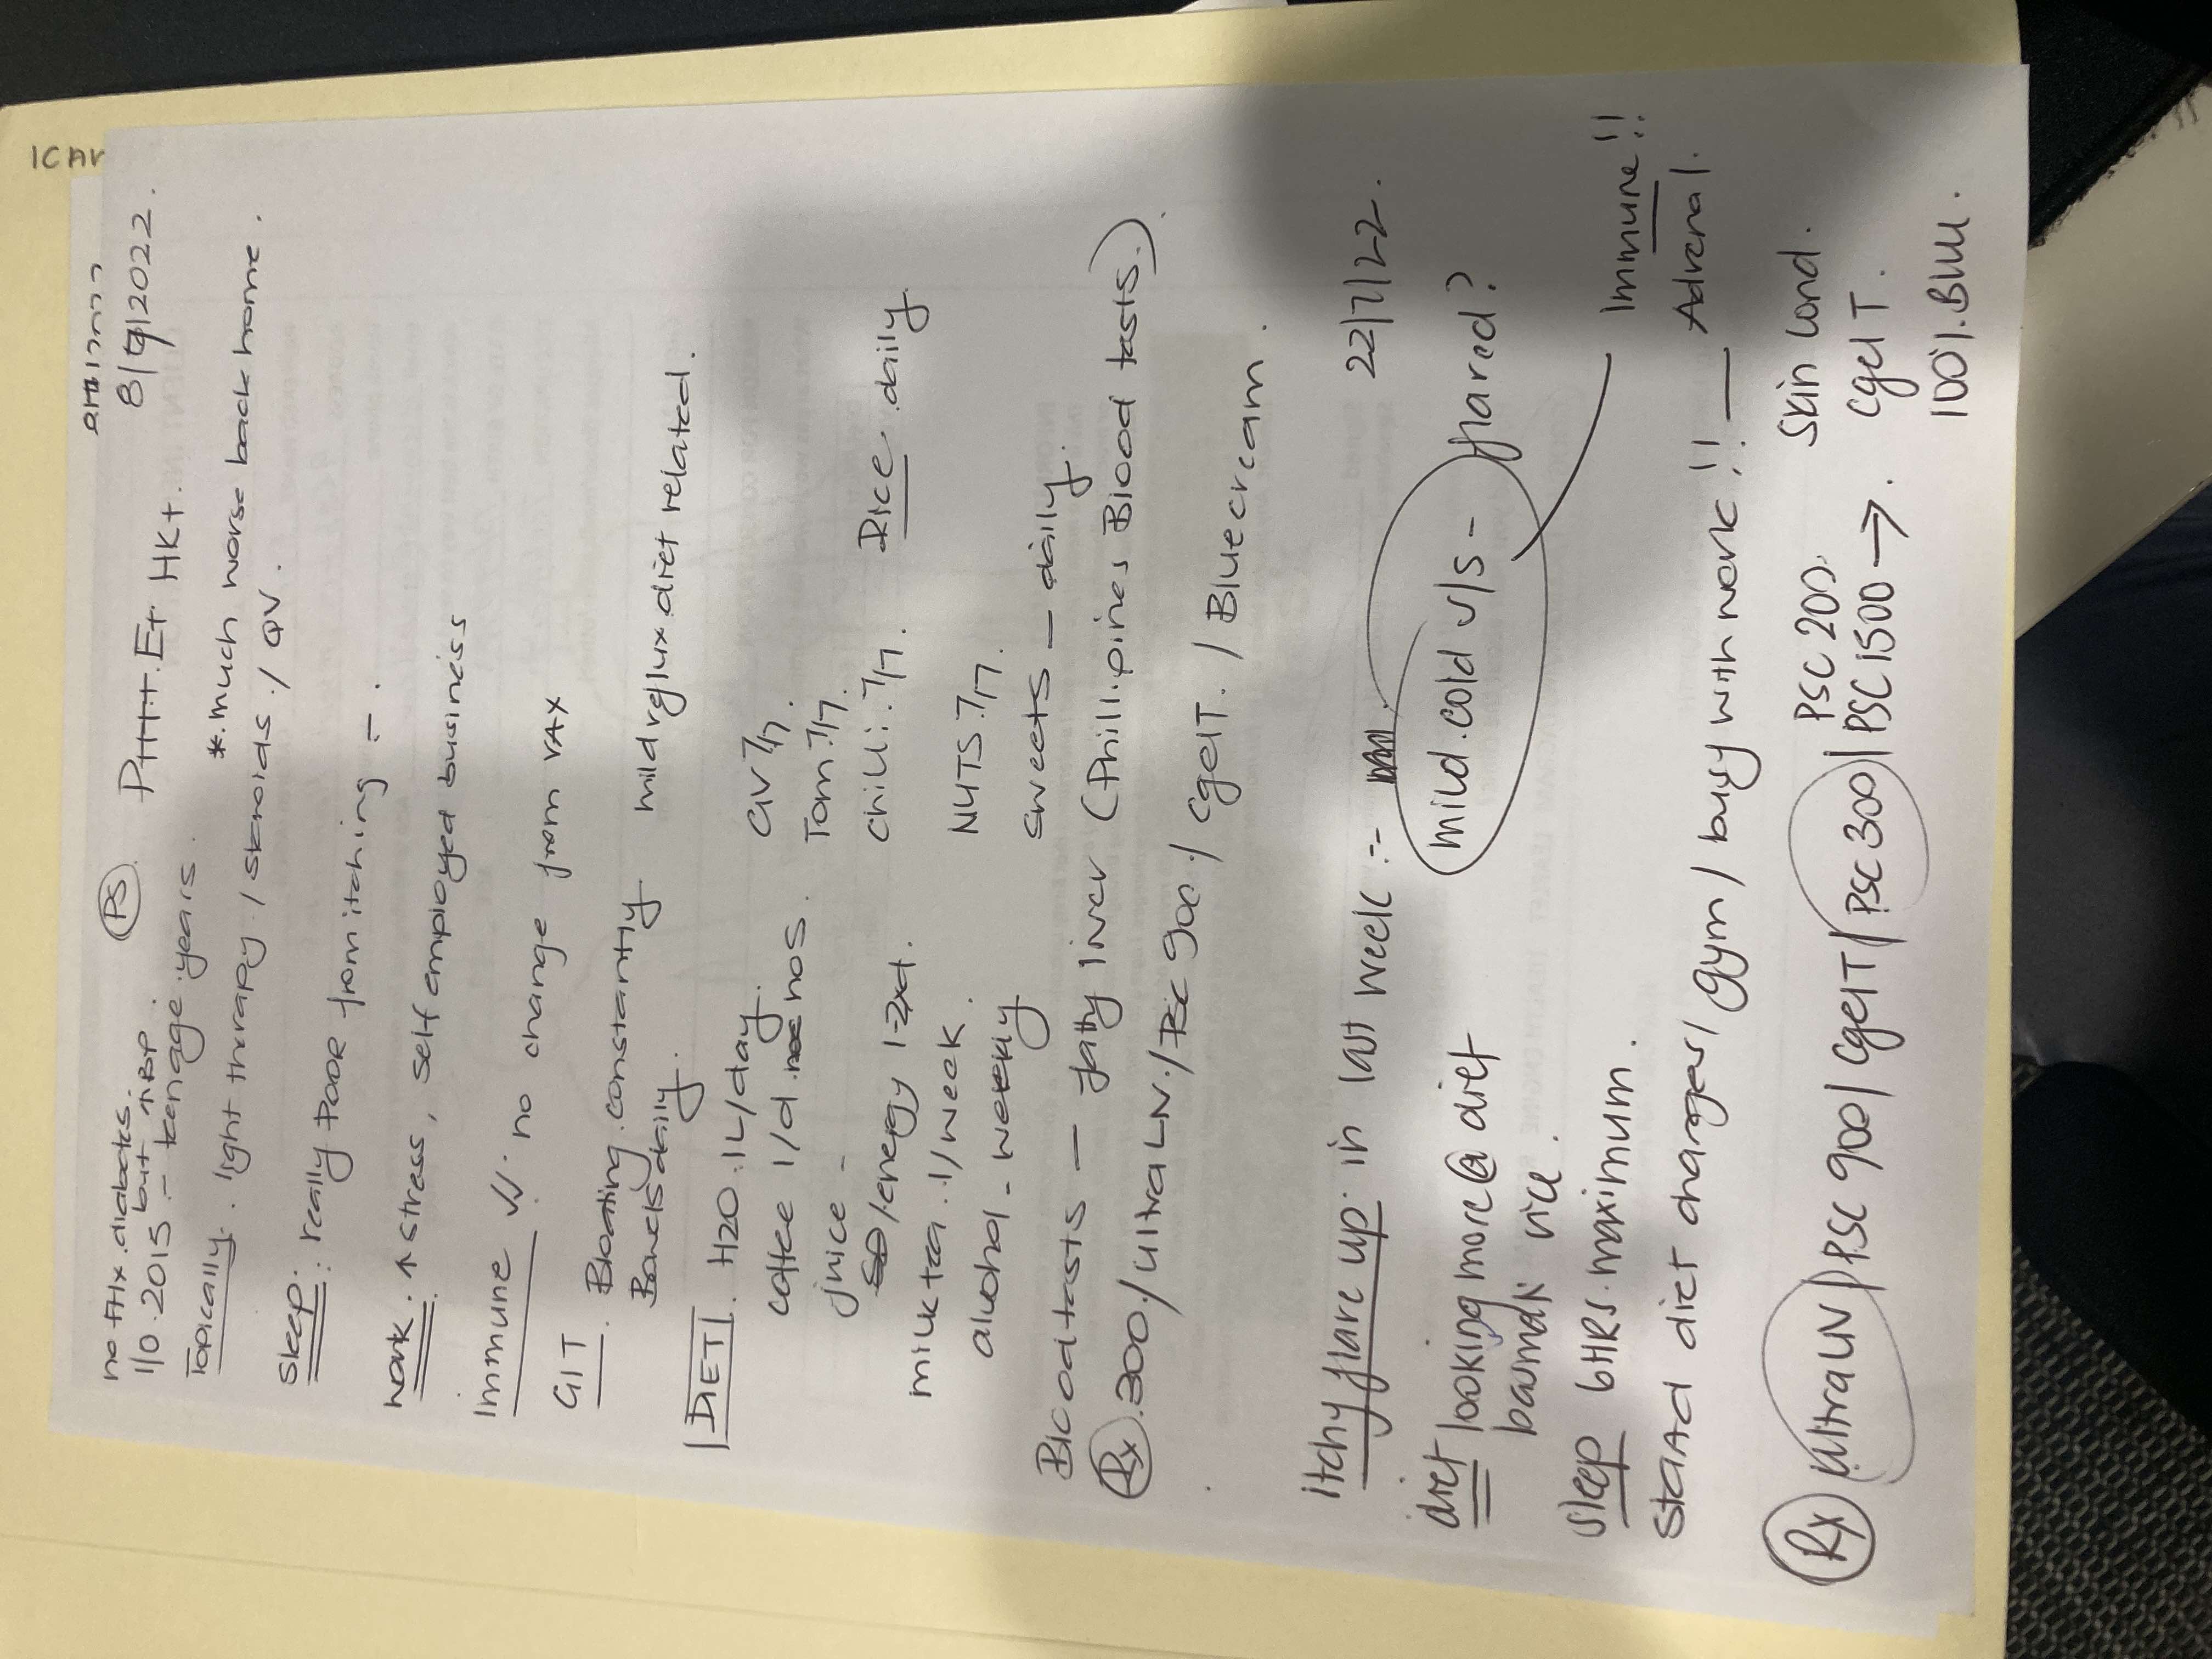 ICAV
no FHx. diabetes. but ↑BP.
PS
P++++. E+ HK+.
8/7/2022.
1/0. 2015 - teenage years.
Topically. light therapy / steroids. / QV.
*. much worse back home.
Sleep: really POOR from itching -.
work. ↑ stress, self employed business
Immune √√. no change from VAX
GIT. Bloating. constantly
mild reflux. diet related.
Bowels daily.
DIET. H20. 1L/day.
coffee 1/d. nos.
juice -
/energy 1-2xd.
milk tea. 1/week.
alcohol - weekly
CIV 7/7.
Tom. 7/7.
Chilli. 7/7.
NUTS. 7/7.
Sweets - daily.
Rice. daily
Blood tests - fatty liver (Phillipines Blood tests.)
Rx. 300. / Ultra LN. / PSC 900. / CgelT. / Blue cream.
Itchy flare up: in last week :-
22/7/22.
mild. cold v/s - flared?
Immune!!
diet looking more @ diet
basmati rice.
Sleep 6HRS. maximum.
Started diet changes / gym / busy with work!! - Adrenal.
Rx Ultra LN / PSC 900 / CgelT / PSC 300 / PSC 1500 →. CgelT.
PSC 200.
Skin Cond.
100%. BW.